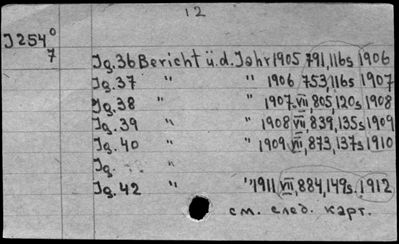 12
J 254⁰
7
Jg. 36 Bericht ü. d. Jahr 1905, 791, 116 s 1906
Jg. 37 " " 1906 753, 116 s 1907
Jg. 38 " " 1907. VII, 805, 120 s 1908
Jg. 39 " " 1908 VII, 839, 135 s 1909
Jg. 40 " " 1909 VII, 873, 137 s 1910
Jg. "
Jg. 42 " " 1911 VII, 884, 149 s. 1912
см. след. карт.